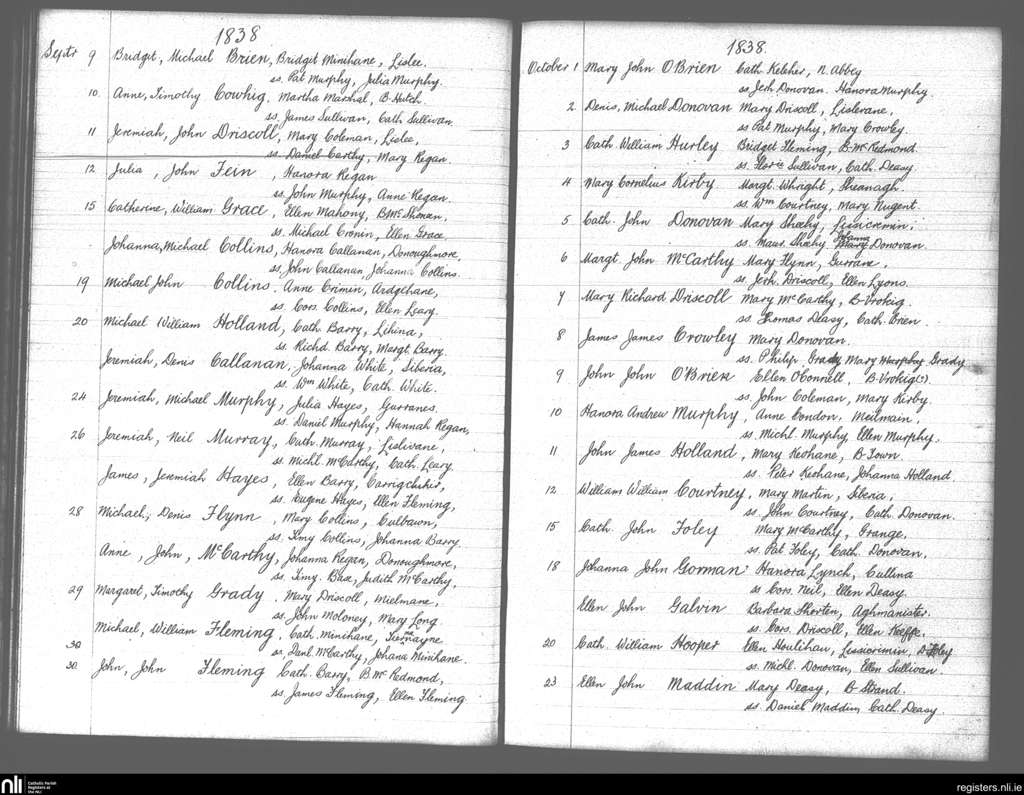 1838
Septr 9 Bridget, Michael Brien, Bridget Minihane, Lislee.
ss. Pat Murphy, Julia Murphy.
10. Anne, Timothy Cowhig, Martha Marshal, B. Hutch.
ss. James Sullivan, Cath Sullivan
11 Jeremiah, John Driscoll, Mary Coleman, Lislee,
ss. Daniel Carthy, Mary Regan.
12 Julia, John Fein, Hanora Regan
ss. John Murphy, Anne Regan.
15 Catherine, William Grace, Ellen Mahony,
ss. Michael Cronin, Ellen Grace
Johanna, Michael Collins, Hanora Callanan, Donoughmore,
ss. John Callanan, Johanna Collins.
19 Michael John Collins. Anne Crimin, Ardgehane,
ss. Cors. Collins, Ellen Leary.
20 Michael William Holland, Cath. Barry, Lehina,
ss. Richd. Barry, Margt. Barry.
Jeremiah, Denis Callanan, Johanna White, Siberia,
ss. Wm White, Cath. White.
24 Jeremiah, Michael Murphy, Julia Hayes, Gurranes.
ss. Daniel Murphy, Hannah Regan,
26 Jeremiah, Neil Murray, Cath. Murray, Lislivane,
ss. Michl. McCarthy, Cath. Leary.
James, Jeremiah Hayes, Ellen Barry, Carrigcluhir,
ss. Eugene Hayes, Ellen Fleming,
28 Michael, Denis Flynn, Mary Collins, Culbawn,
ss. Timy Collins, Johanna Barry
Anne, John, McCarthy, Johanna Regan, Donoughmore,
ss. Timy. Judith McCarthy,
29 Margaret, Timothy Grady. Mary Driscoll, Mielmane,
ss. John Moloney, Mary Long.
Michael, William Fleming, Cath. Minihane,
30 ss. Danl. McCarthy, Johana Minihane.
30. John, John Fleming Cath. Barry, B. Mc Redmond,
ss. James Fleming, Ellen Fleming.
1838.
October 1 Mary John O'Brien Cath. Keleher, N. Abbey
ss. Jerh. Donovan. Hanora Murphy.
2 Denis, Michael Donovan Mary Driscoll, Lislevane,
ss Pat Murphy, Mary Crowley.
3 Cath. William Hurley Bridget Fleming, B. Mc Redmond.
ss. Florce Sullivan, Cath. Deasy.
4 Mary Cornelius Kirby Margt. Whright, Sheanagh.
ss. Wm Courtney, Mary Nugent.
5 Cath. John Donovan Mary Sheehy, Lissicrimin,
ss. Maus. Sheehy. Johanna Donovan.
6 Margt. John McCarthy Mary Flynn, Gurrane,
ss. Jerh. Driscoll, Ellen Lyons.
7 Mary Richard Driscoll Mary McCarthy, B-Vrokig.
ss. Thomas Deasy, Cath. Brien.
8 James James Crowley Mary Donovan.
ss. Philip Grady Mary Murphy Grady
9 John John O'Brien Ellen OConnell, B-Vrokig(?)
ss. John Coleman, Mary Kirby.
10 Hanora Andrew Murphy, Anne Condon, Meilmain,
ss. Michl. Murphy, Ellen Murphy.
11 John James Holland, Mary Keohane, B-Town.
ss. Peter Keohane, Johanna Holland.
12 William William Courtney, Mary Martin, Siberia,
ss. John Courtney, Cath. Donovan.
15 Cath. John Foley Mary McCarthy, Grange,
ss. Pat Foley, Cath. Donovan,
18 Johanna John Gorman Hanora Lynch, Cullina
ss Cors. Neil, Ellen Deasy.
Ellen John Galvin Barbara Shorten, Aghmanister.
ss. Cors. Driscoll, Ellen Keeffe.
20 Cath. William Hooper Ellen Houlihan, Lissicrimin,
ss. Michl. Donovan, Ellen Sullivan.
23 Ellen John Maddin Mary Deasy, B-Strand.
ss. Daniel Maddin, Cath. Deasy.
nli
Catholic Parish
Registers at
the NLI
registers.nli.ie